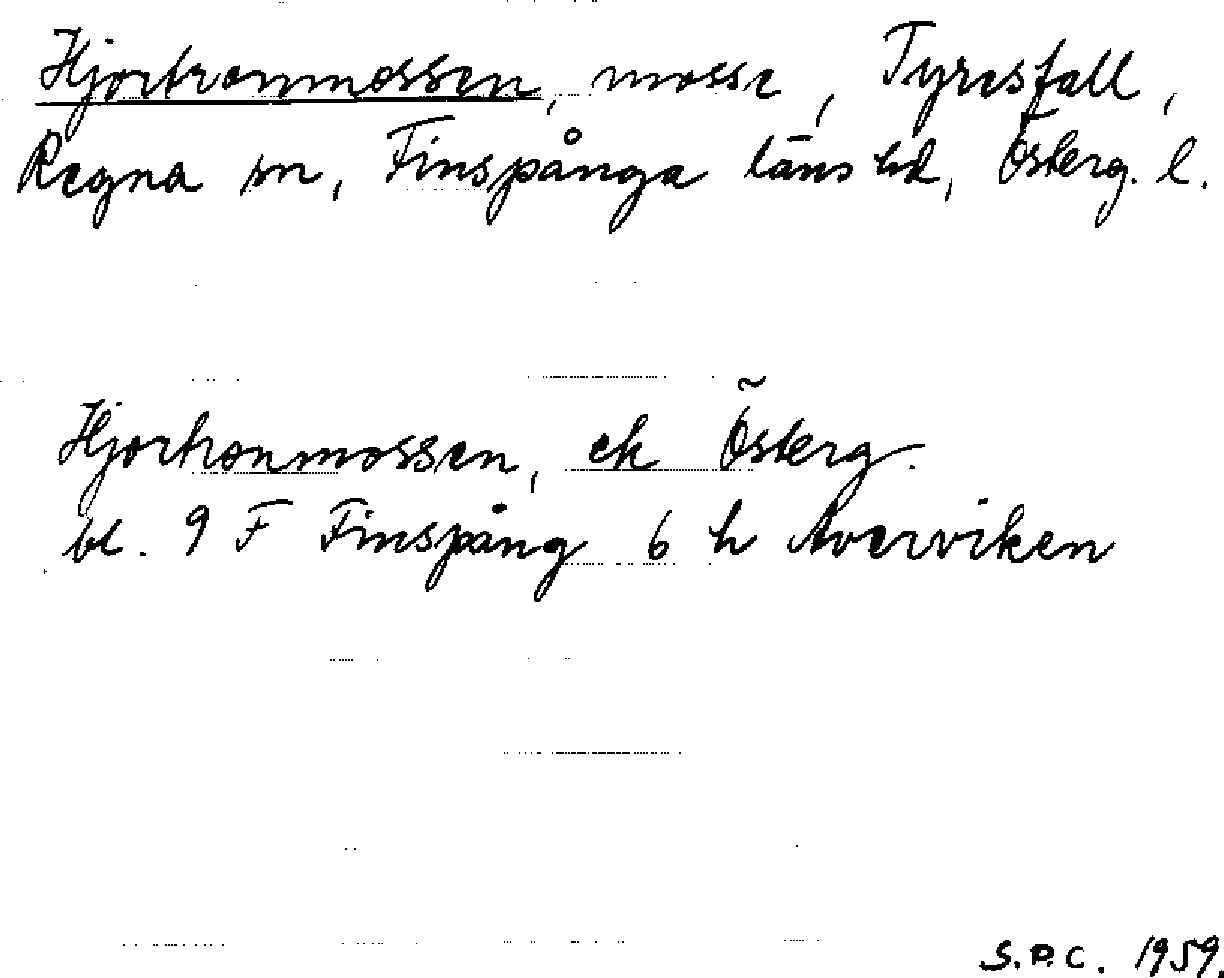 Hjortronmossen, mosse, Tyresfall,
Regna sn, Finspånga läns hd, Österg. l.
Hjortronmossen, ek Österg.
bl. 9 F Finspång 6 h Averviken
S.P.C. 1959.